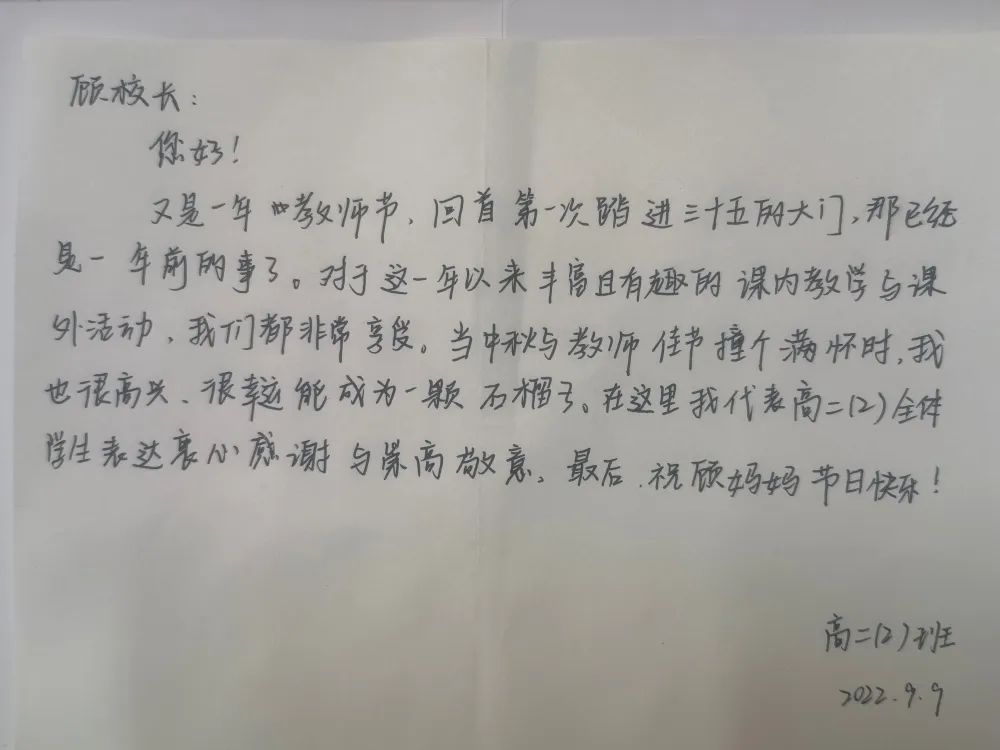 顾校长：
您好！
又是一年的教师节，回首第一次踏进三十五的大门，那已经
是一年前的事了。对于这一年以来丰富且有趣的课内教学与课
外活动，我们都非常享受。当中秋与教师佳节撞个满怀时，我
也很高兴、很幸运能成为一颗石榴子。在这里我代表高二（2）全体
学生表达衷心感谢与崇高敬意。最后，祝顾妈妈节日快乐！
高二（2）班
2022.9.9